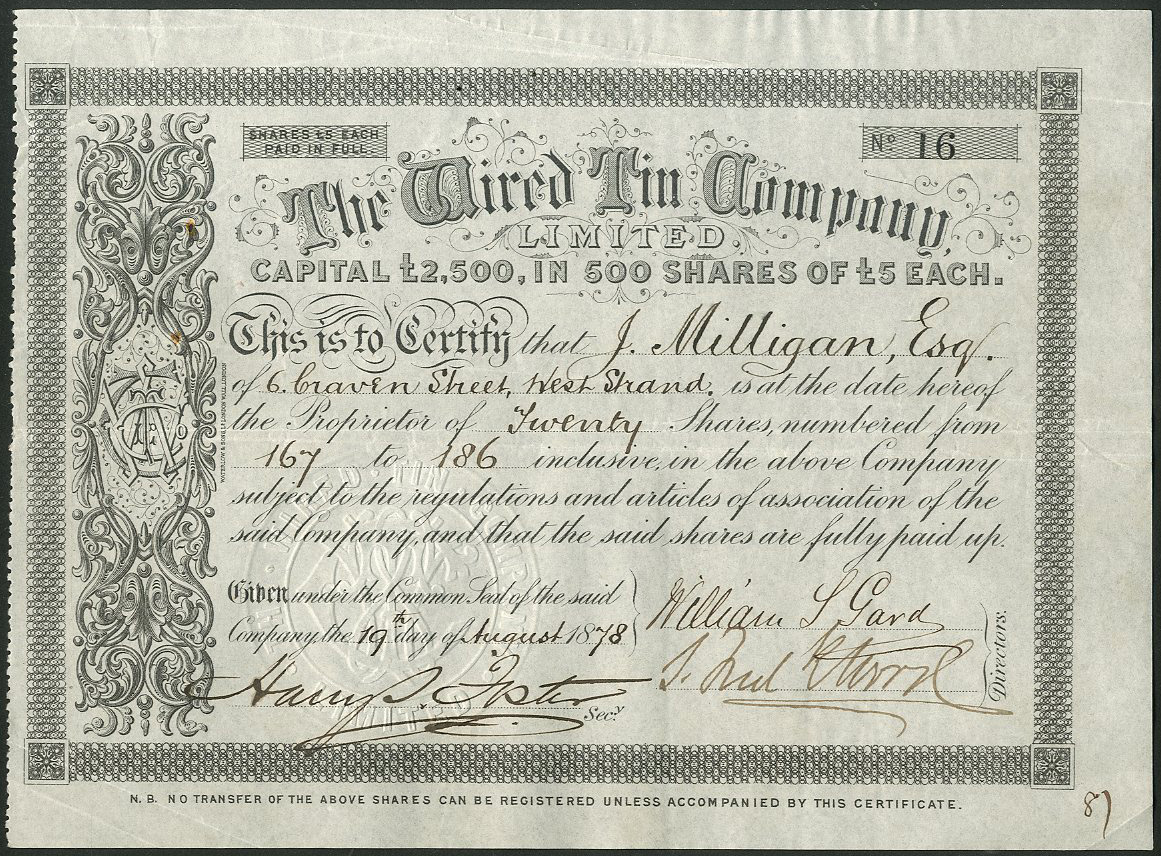 SHARES £5 EACH
PAID IN FULL.
No 16
The Wired Tin Company,
LIMITED.
CAPITAL £2,500, IN 500 SHARES OF £5 EACH.
This is to Certify that J. Milligan, Esq.
of 6. Craven Street, West Strand. is at the date hereof
the Proprietor of Twenty Shares, numbered from
167 to 186 inclusive, in the above Company
subject to the regulations and articles of association of the
said Company, and that the said shares are fully paid up.
Given under the Common Seal of the said
Company the 19th day of August 1878
William S Gard
Directors.
Harry
Secy.
N.B. NO TRANSFER OF THE ABOVE SHARES CAN BE REGISTERED UNLESS ACCOMPANIED BY THIS CERTIFICATE.
87